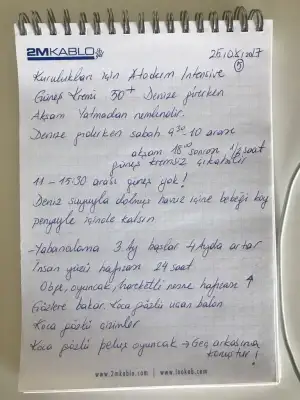 2M KABLO
25/08/2017
5
Kuruluktan için Atoderm Intensive
Güneş Kremi 50+ Denize girerken
Akşam Yatmadan nemlendir.
Denize giderken sabah 9:30-10 arası
akşam 18:00 sonrası 1/2 saat
güneş kremsiz çıkabilir
11-15:30 arası güneş yok!
Deniz suyuyla dolmuş havuz içine bebeği koy
penyeyle içinde kalsın
-Yabancılama 3. Ay başlar 4 Ayda artar
İnsan yüzü hafızası 24 saat
Obje, oyuncak, hareketli nesne hafızası ↑
Gözlere bakar. Koca gözlü uçan balon
Koca gözlü çizimler
Koca gözlü peluş oyuncak → Geç arkasına
konuştur!
www.2mkablo.com | www.inekab.com